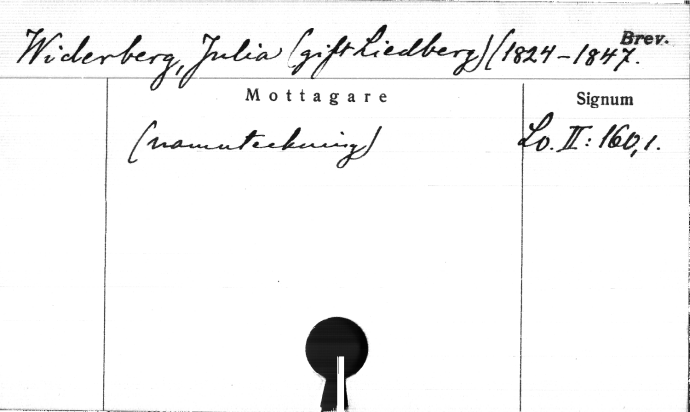 Widerberg, Julia (gift Liedberg) (1824-1847. Brev.
Mottagare Signum
(namnteckning) Lo. II: 160,1.